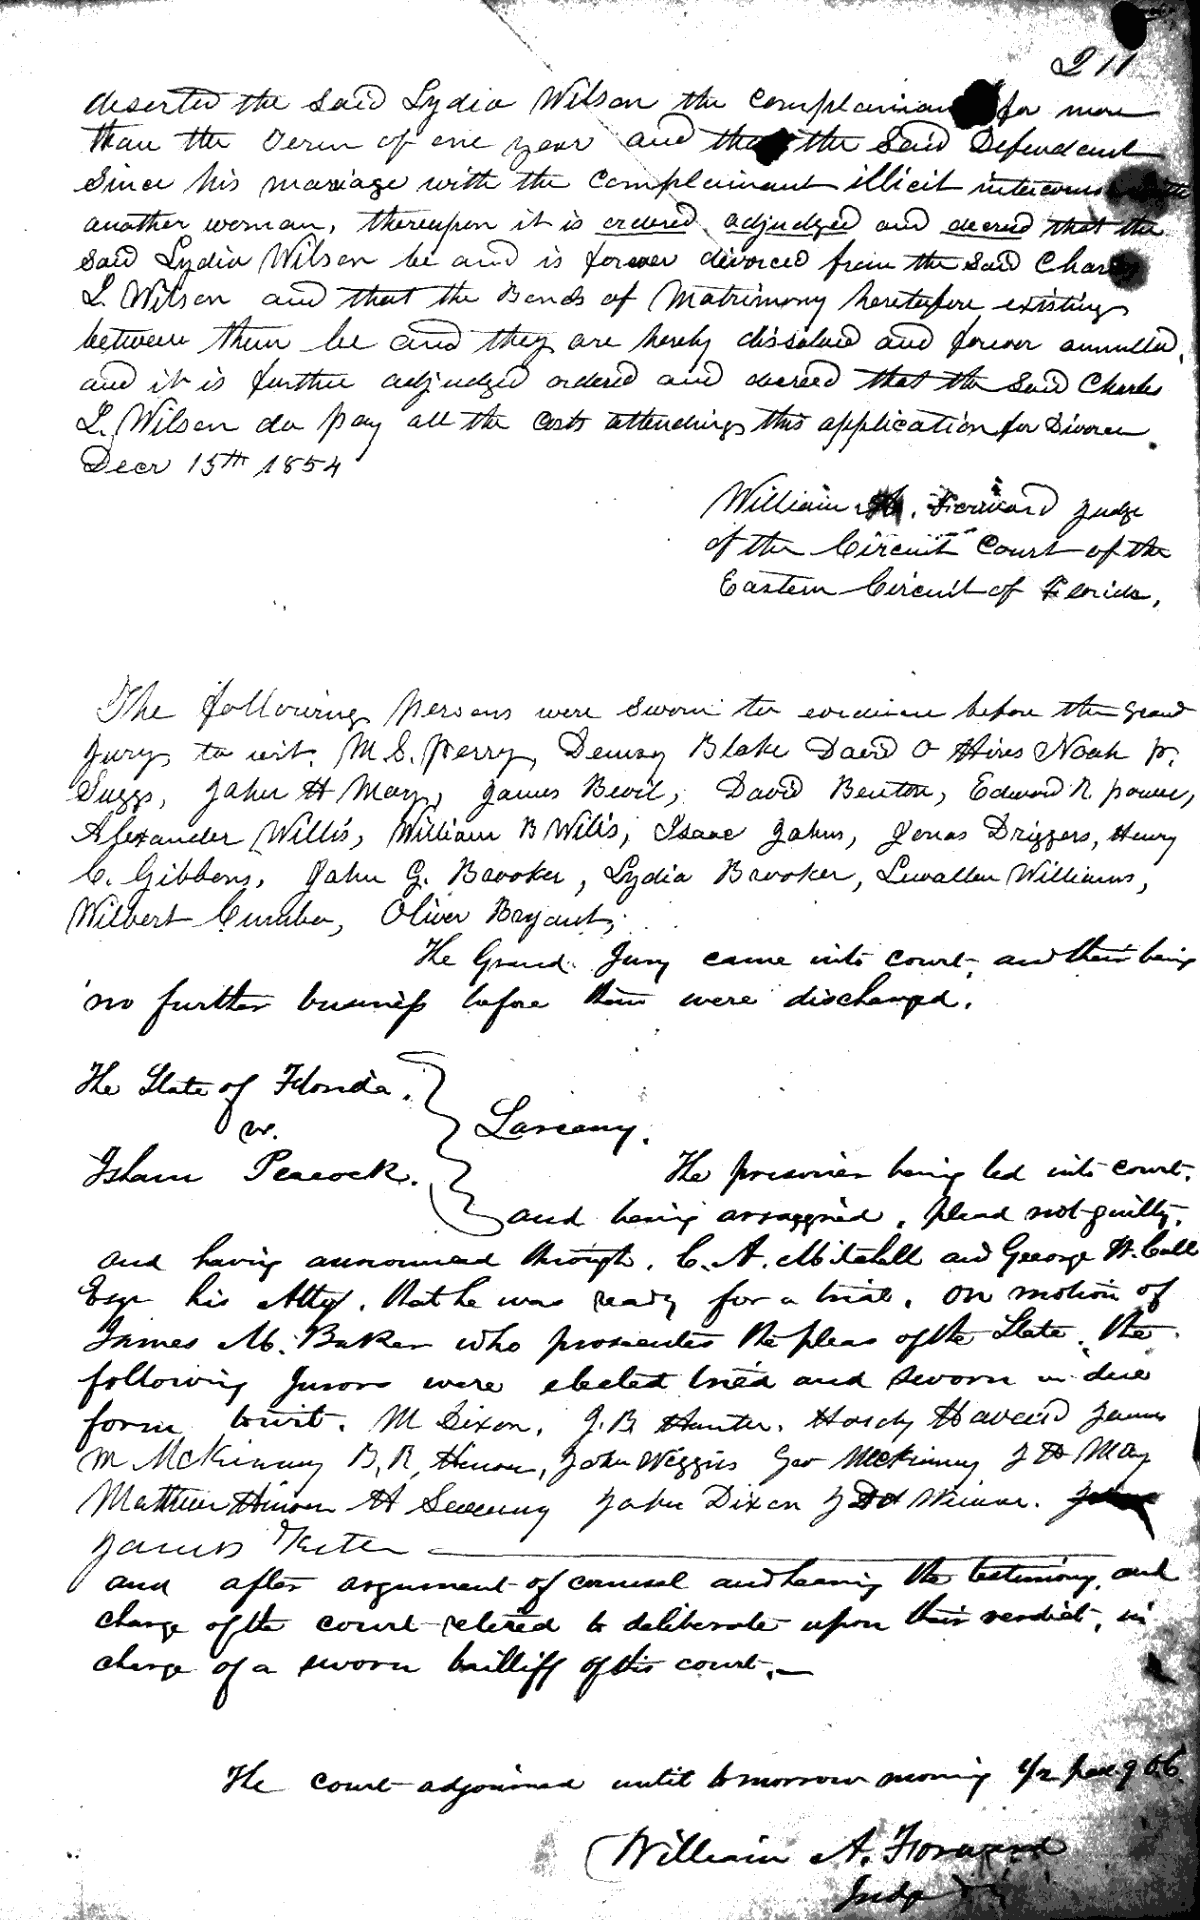 211
deserted the said Lydia Wilson the complainant for more
than the Term of one year and that the said Defendant
since his mariage with the complainant illicit intercourse with
another woman, thereupon it is ordered adjudged and decreed that the
said Lydia Wilson be and is forever divorced from the said Charles
L. Wilson and that the Bonds of Matrimony heretofore existing
between them be and they are hereby dissolved and forever annulled,
and it is further adjudged ordered and decreed that the said Charles
L. Wilson do pay all the costs attending this application for Divorce.
Decr 15th 1854
William A. Forward Judge
of the Circuit Court of the
Eastern Circuit of Florida,
The following persons were sworn to evidence before the grand
Jury to wit. M. S. Perry, Dempsy Blake David O Hires Noah P.
Suggs, John H May, James Bevil, David Benton, Edward R. Power,
Alexander Willis, William B Willis, Isaac Johns, Jonas Driggers, Henry
C. Gibbons, John G. Brooker, Lydia Brooker, Lewallen Williams,
Wilbert Oliver Bryant,
The Grand Jury came into court, and their being
no further business before them were discharged.
The State of Florida.
vs.
Isham Peacock.
Larceny.
The prisoner being led into court,
and being arraigned, plead not guilty,
and having announced through, C. A. Mitchell and George W. Call
Esqr his Attys. that he was ready for a trial, on motion of
James M. Baker who prosecutes the pleas of the State, the
following Jurors were elected tried and sworn in due
form towit. M Dixon, J. B Hunter, Hardy James
M McKinney B. R. John Wiggins Geo McKinney J H May
Matthew H Sweeney John Dixon J D H
James
and after argument of counsel and hearing the testimony, and
charge of the court retired to deliberate upon their verdict, in
charge of a sworn bailliff of this court.
The court adjourned until tomorrow morning 1/2 past 9 O.C.
William A. Forward
Judge